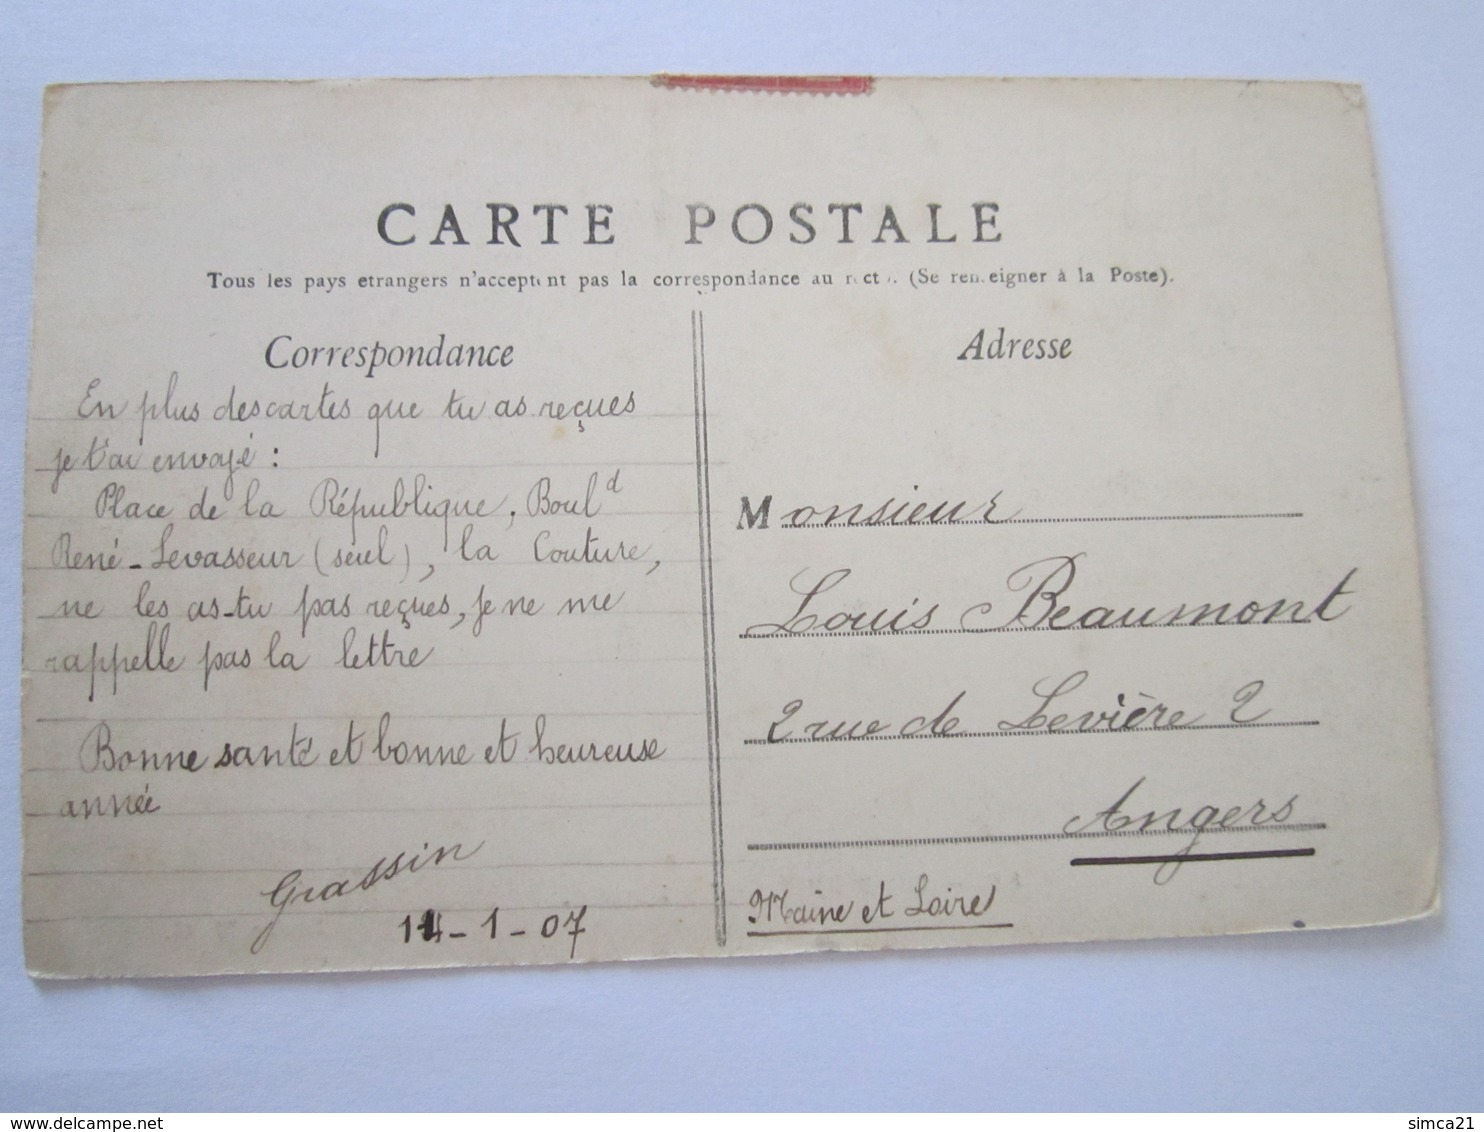 CARTE POSTALE
Tous les pays etrangers n'acceptent pas la correspondance au recto. (Se renseigner à la Poste).
Correspondance
En plus des cartes que tu as reçues
je t'ai envoyé :
Place de la République, Boul d
René-Levasseur (seul), la Couture,
ne les as-tu pas reçues, je ne me
rappelle pas la lettre
Bonne santé et bonne et heureuse
année
Grassin
14-1-07
Adresse
Monsieur
Louis Beaumont
2 rue de Levière 2
Angers
Maine et Loire
www.delcampe.net
simca21